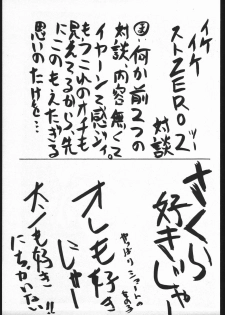 イケイケ
ストZERO2
対談
何か前2つの
対談、内容無くて
イヤーンて感ジ。
もうこれのオチも
見えてるから先
にこのもえたぎる
思いのたけを…
さくら
好きじゃー
やっぱり
オレも好き
じゃー
大ノも好き
にちがいない!!